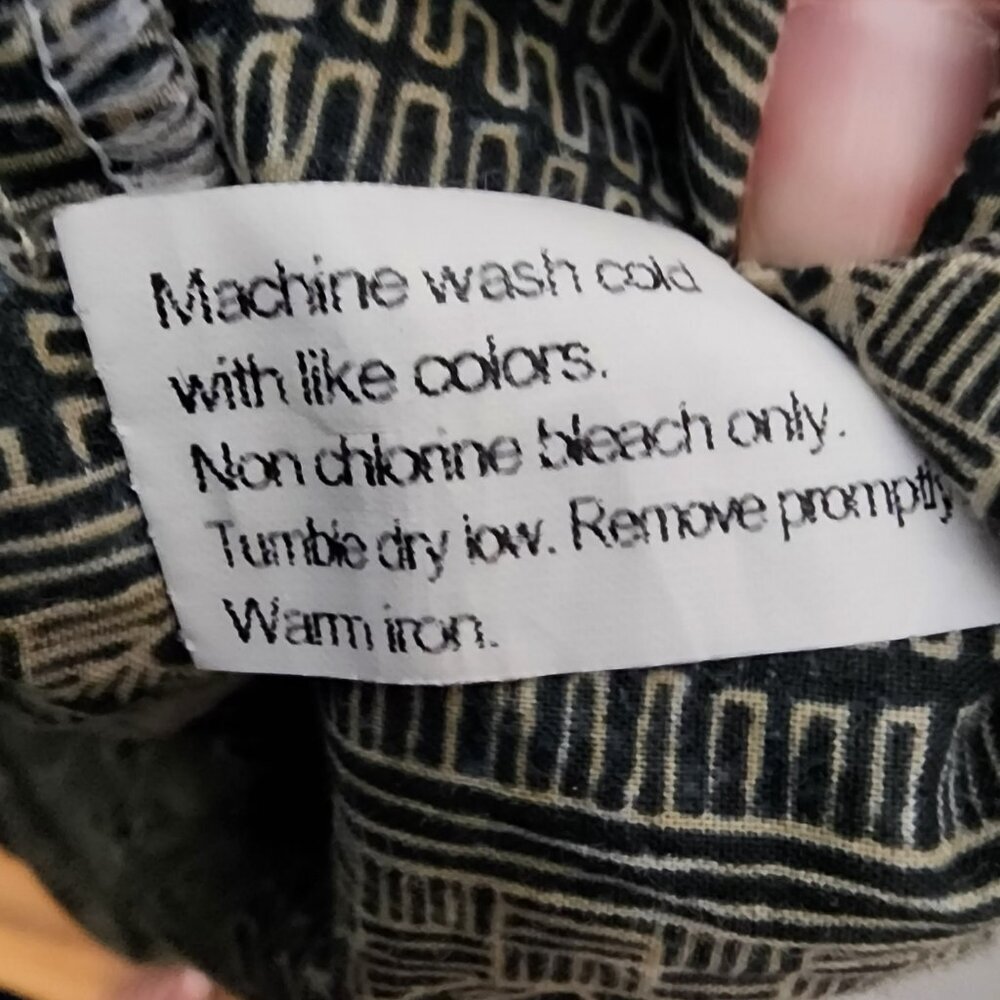 Machine wash cold
with like colors.
Non chlorine bleach only.
Tumble dry low. Remove promptly
Warm iron.